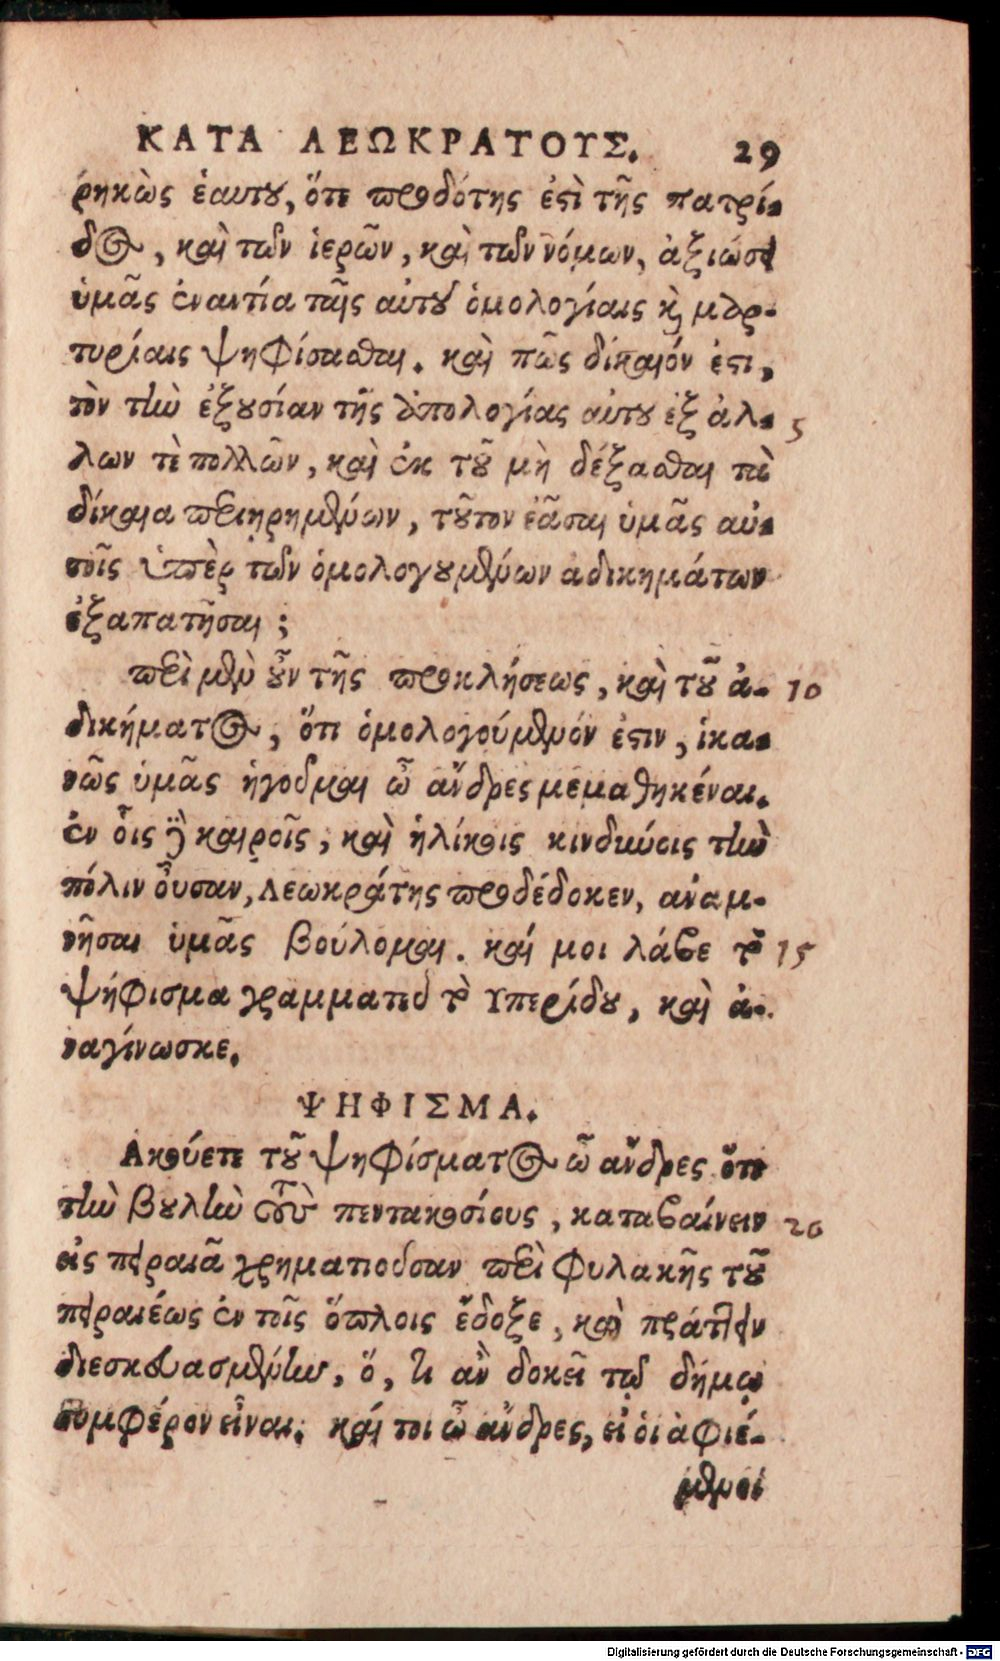 ΚΑΤΑ ΛΕΩΚΡΑΤΟΥΣ. 29
ρηκὼς ἑαυτου, ὅτι προδότης ἐστὶ τῆς πατρί-
δος, καὶ των ἱερῶν, καὶ των νόμων, ἀξιώσει
ὑμᾶς ἐναντία ταῖς αὑτοῦ ὁμολογίαις καὶ μαρ-
τυρίαις ψηφίσασθαι. καὶ πῶς δίκαιόν ἐστι,
τὸν τὴν ἐξουσίαν τῆς ἀπολογίας αὑτου ἐξ ἀλ- 5
λων τὲ πολλῶν, καὶ ἐκ τοῦ μὴ δέξασθαι τὰ
δίκαια περιηρημένων, τοῦτον ἐᾶσαι ὑμᾶς αὐ-
τοῖς ὑπὲρ των ὁμολογουμένων ἀδικημάτων
ἐξαπατῆσαι;
περὶ μὲν οὖν τῆς προκλήσεως, καὶ τοῦ ἀ- 10
δικήματος, ὅτι ὁμολογούμενόν ἐστιν, ἱκα-
νῶς ὑμᾶς ἡγοῦμαι ὦ ἄνδρες μεμαθηκέναι.
ἐν οἷς δὲ καιροῖς, καὶ ἡλίκοις κινδύνοις τὴν
πόλιν οὖσαν, Λεωκράτης προδέδοκεν, ἀναμ-
νῆσαι ὑμᾶς βούλομαι. καί μοι λάβε τὸ 15
ψήφισμα γραμματεῦ τὸ Υπερίδου, καὶ ἀ-
ναγίνωσκε.
ΨΗΦΙΣΜΑ.
Ακούετε τοῦ ψηφίσματος ὦ ἄνδρες ὅτι
τὴν βουλὴν τοὺς πεντακοσίους, καταβαίνειν 20
εἰς πειραιᾶ χρηματιοῦσαν περὶ φυλακῆς τοῦ
πειραιέως ἐν τοῖς ὅπλοις ἔδοξε, καὶ πράττειν
διεσκευασμένην, ὅ, τι ἂν δοκεῖ τῷ δήμῳ
συμφέρον εἶναι. καί τοι ὦ ἄνδρες, εἰ οἱ ἀφιέ-
μενοι
Digitalisierung gefördert durch die Deutsche Forschungsgemeinschaft - DFG